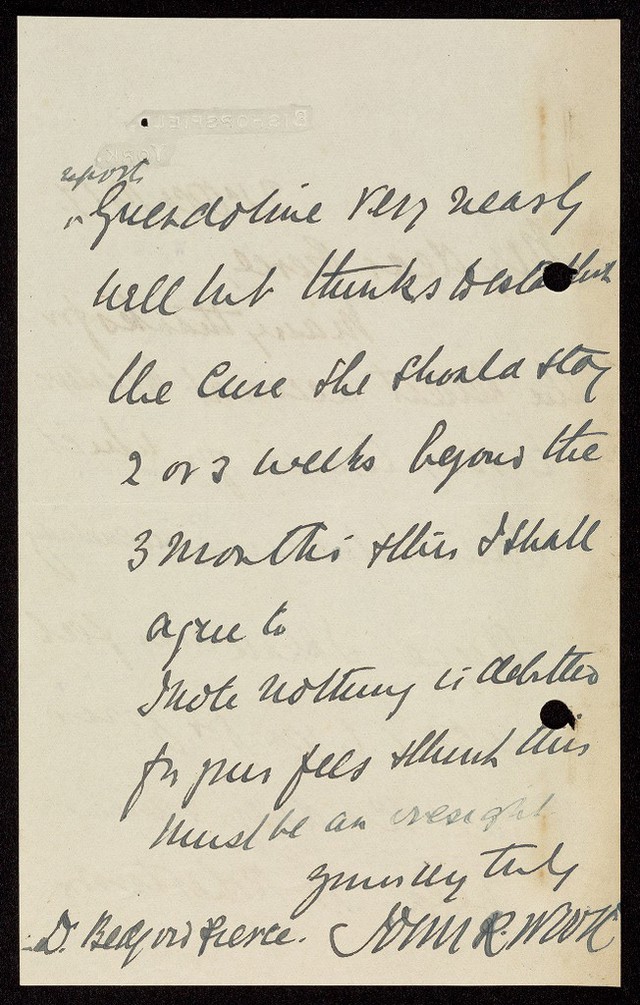 BISHOPSFIEL
YORK
report
Guendoline very nearly
well but thinks to establish
the cure she should stay
2 or 3 weeks beyond the
3 months & this I shall
agree to
I note nothing is debited
for your fees & think this
must be an oversight
Yours very truly
Dr. Bedford Pierce. John R. Wood